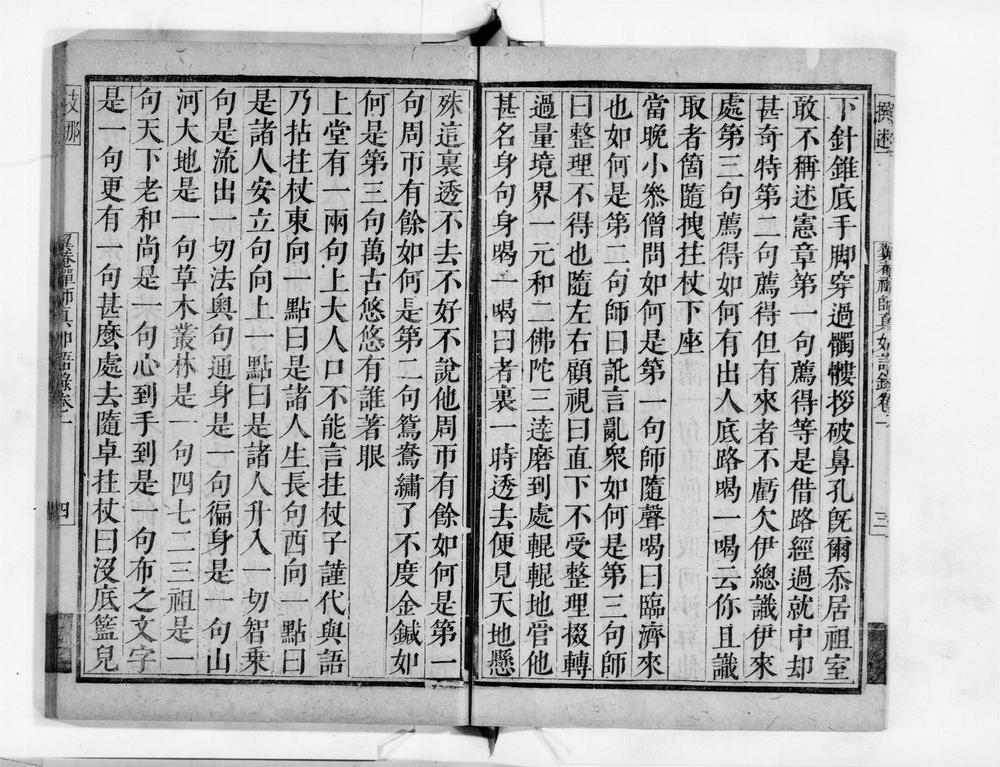 下針錐底手脚穿過髑髏拶破鼻孔旣爾忝居祖室
敢不稱述憲章第一句薦得等是借路經過就中却
甚奇特第二句薦得但有來者不虧欠伊總識伊來
處第三句薦得如何有出人底路喝一喝云你且識
取者箇隨拽拄杖下座
當晚小叅僧問如何是第一句師隨聲喝曰臨濟來
也如何是第二句師曰訛言亂衆如何是第三句師
曰整理不得也隨左右顧視曰直下不受整理掇轉
過量境界一元和二佛陀三達磨到處輥輥地管他
甚名身句身喝一喝曰者裏一時透去便見天地懸
殊這裏透不去不好不說他周帀有餘如何是第一
句周帀有餘如何是第二句鴛鴦繡了不度金鍼如
何是第三句萬古悠悠有誰著眼
上堂有一兩句上大人口不能言拄杖子謹代與語
乃拈拄杖東向一點曰是諸人生長句西向一點曰
是諸人安立句向上一點曰是諸人升入一切智乗
句是流出一切法輿句通身是一句徧身是一句山
河大地是一句草木叢林是一句四七二三祖是一
句天下老和尚是一句心到手到是一句布之文字
是一句更有一句甚麽處去隨卓拄杖曰沒底籃兒
支那
禪師真如語錄卷一
四
撰述
禪師真如語錄卷一
三